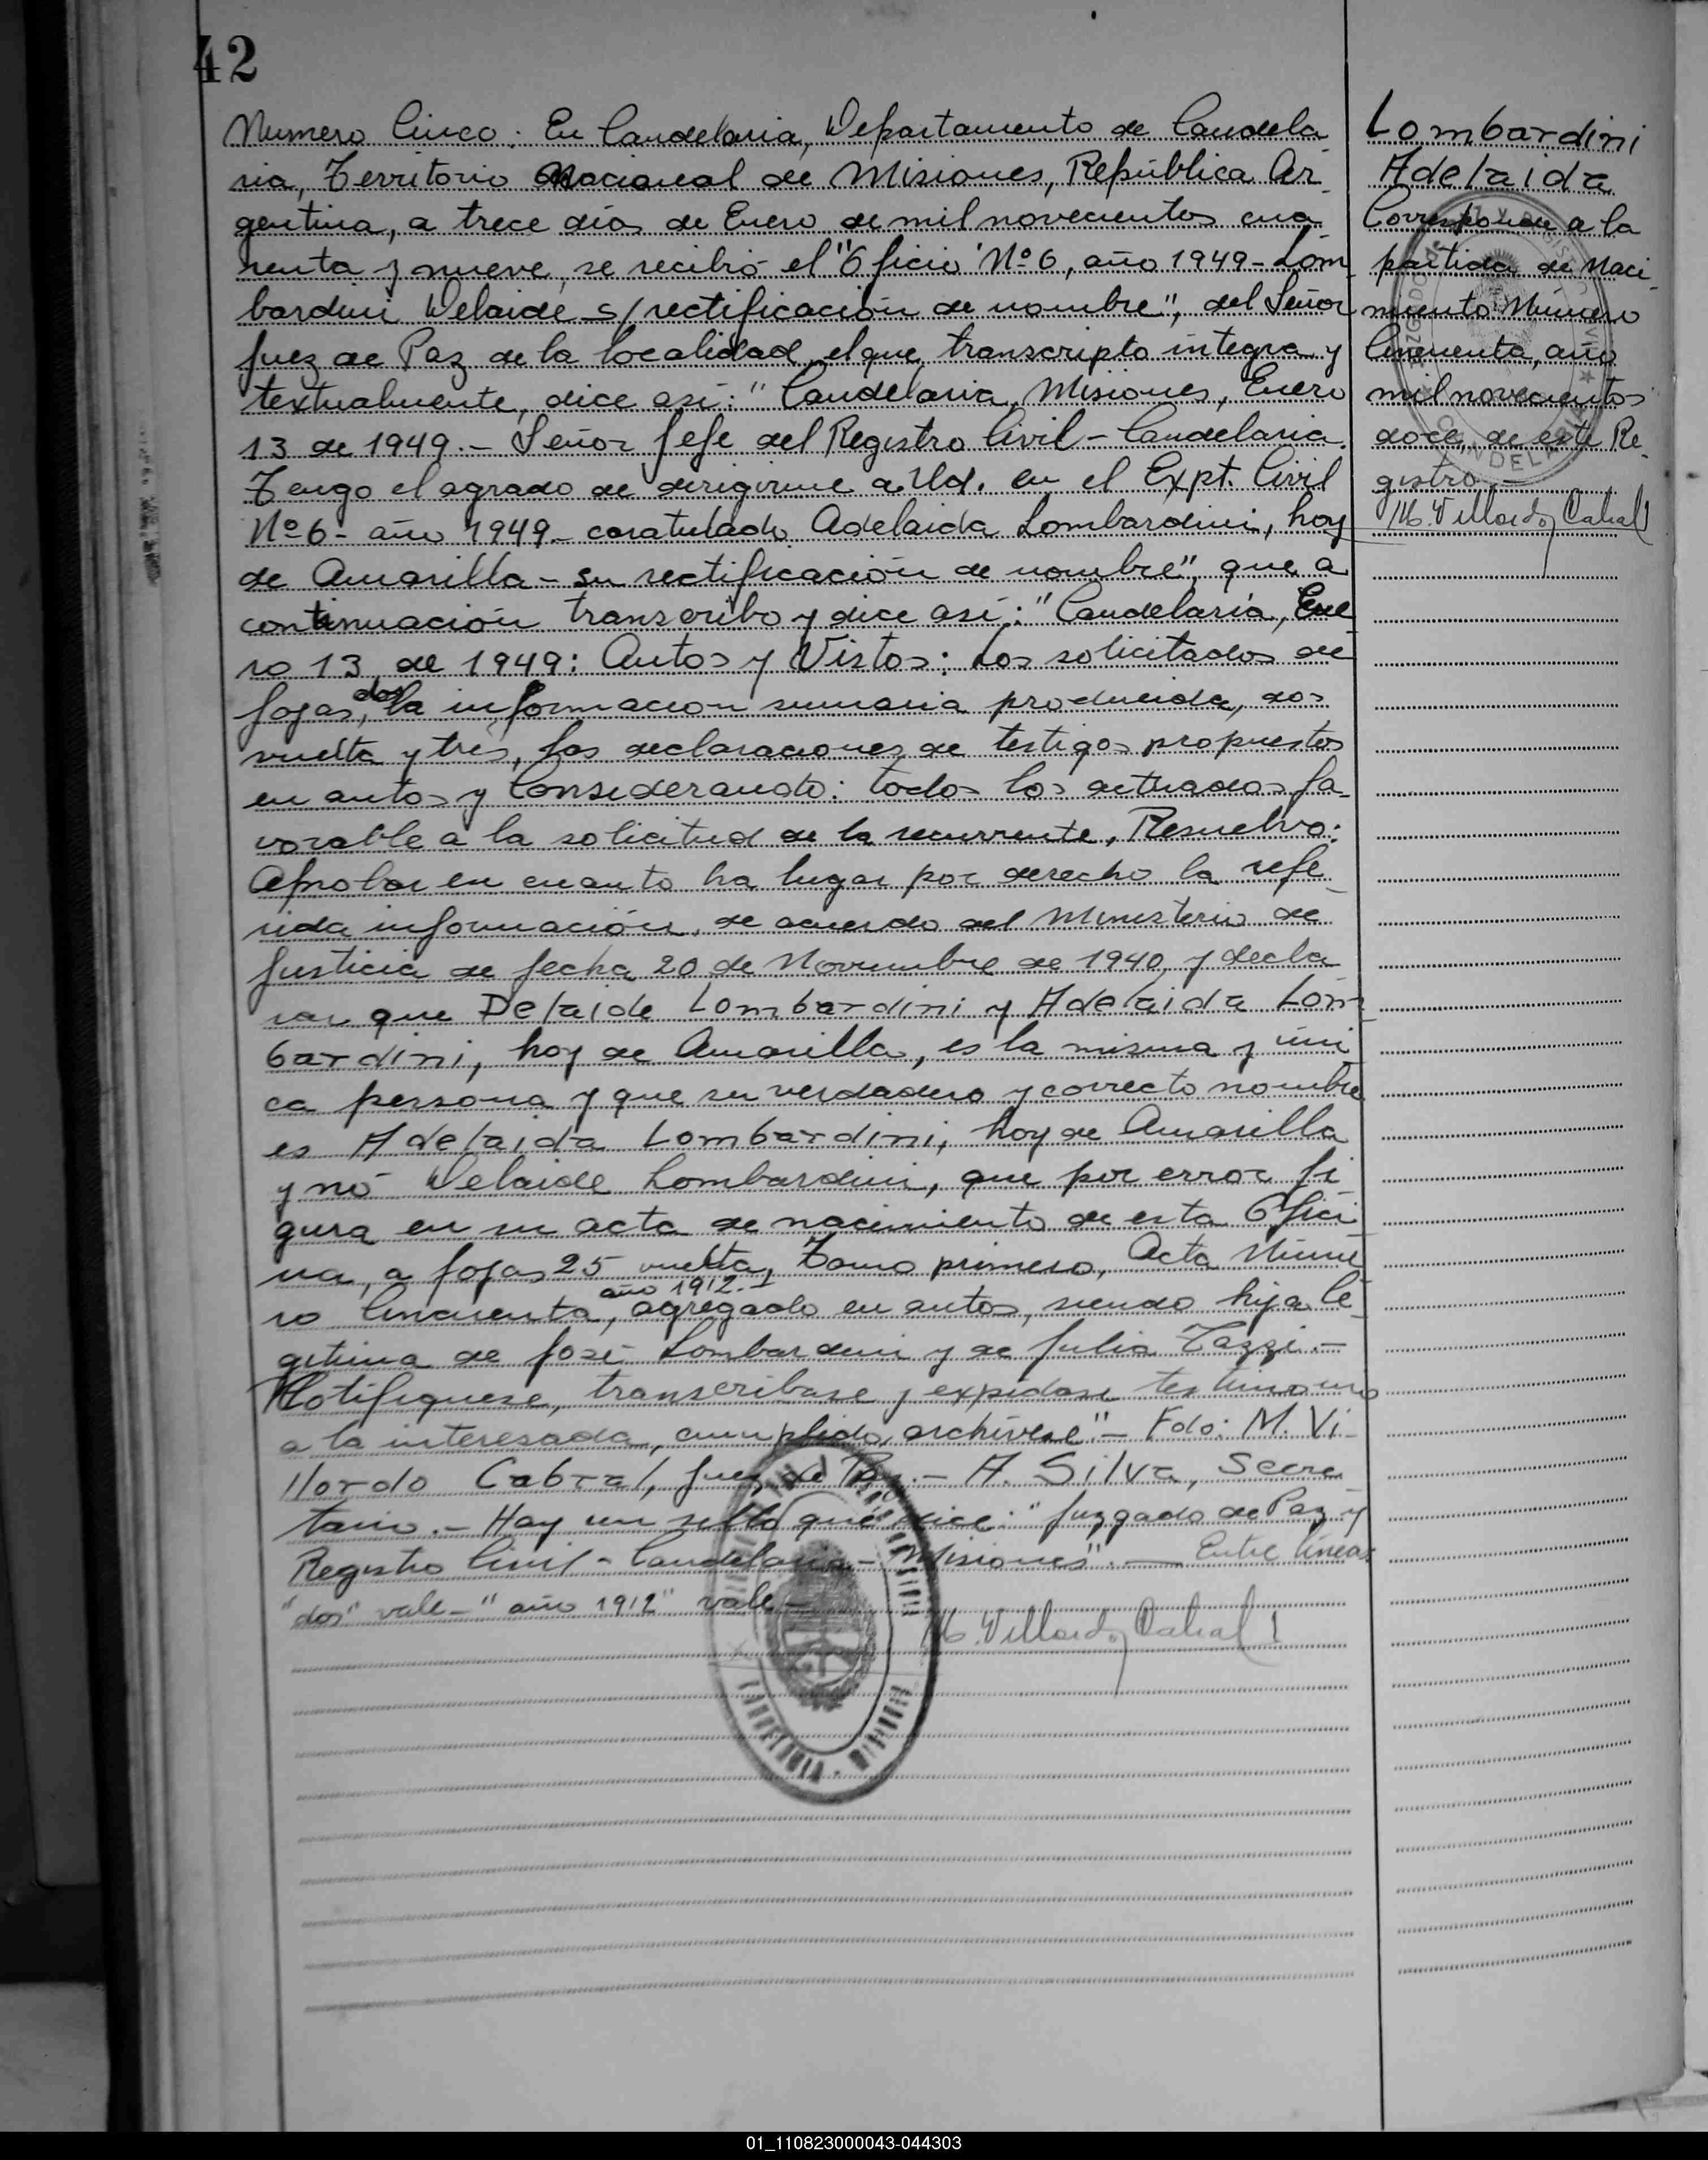 42
Numero Cinco: En Candelaria, Departamento de Candela-
ria, Territorio Nacional de Misiones, República Ar-
gentina, a trece días de Enero de mil novecientos cua-
renta y nueve, se recibió el "Oficio Nº 6, año 1949 - Lom-
bardini Delaide s/ rectificación de nombre", del Señor
Juez de Paz de la localidad, el que transcripto integra y
textualmente, dice así: "Candelaria, Misiones, Enero
13 de 1949.- Señor Jefe del Registro Civil - Candelaria.
Tengo el agrado de dirigirme a Ud. en el Expt. Civil
Nº 6 - año 1949 - caratulado Adelaida Lombardini, hoy
de Amarilla - su rectificación de nombre", que a
continuación transcribo y dice así: "Candelaria, Ene-
ro 13 de 1949: Autos y Vistos: Los solicitados de
fojas dos, la informacion sumaria producida, dos
vuelta y tres, las declaraciones de testigos propuestos
en autos y Considerando: todos los actuados fa-
vorable a la solicitud de la recurrente, Resuelvo:
Aprobar en cuanto ha lugar por derecho la refe-
rida información, de acuerdo del Ministerio de
Justicia de fecha 20 de Noviembre de 1940, y decla-
rar que Delaide Lombardini y Adelaida Lom-
bardini, hoy de Amarilla, es la misma y úni-
ca persona y que su verdadero y correcto nombre
es Adelaida Lombardini, hoy de Amarilla
y nó Delaide Lombardini, que por error fi-
gura en su acta de nacimiento de esta Ofici-
na, a fojas 25 vuelta, Tomo primero, Acta Núme-
ro Cincuenta, año 1912.- agregado en autos, siendo hija le-
gitima de José Lombardini y de Julia Tazzi.-
Notifiquese, transcribase y expidase testimonio
a la interesada, cumplido, archívese".- Fdo: M. Vi-
llordo Cabral, Juez de Paz.- A. Silva, Secre-
tario.- Hay un sello que dice: "Juzgado de Paz y
Registro Civil - Candelaria - Misiones".- Entre lineas
"dos" vale - "año 1912" vale.-
M. Villordo Cabral
CANDELARIA - MISIONES
Lombardini
Adelaida
Corresponde a la
partida de Naci-
miento Número
Cincuenta, año
mil novecientos
doce, de este Re-
gistro.-
M. Villordo Cabral
01_110823000043-044303